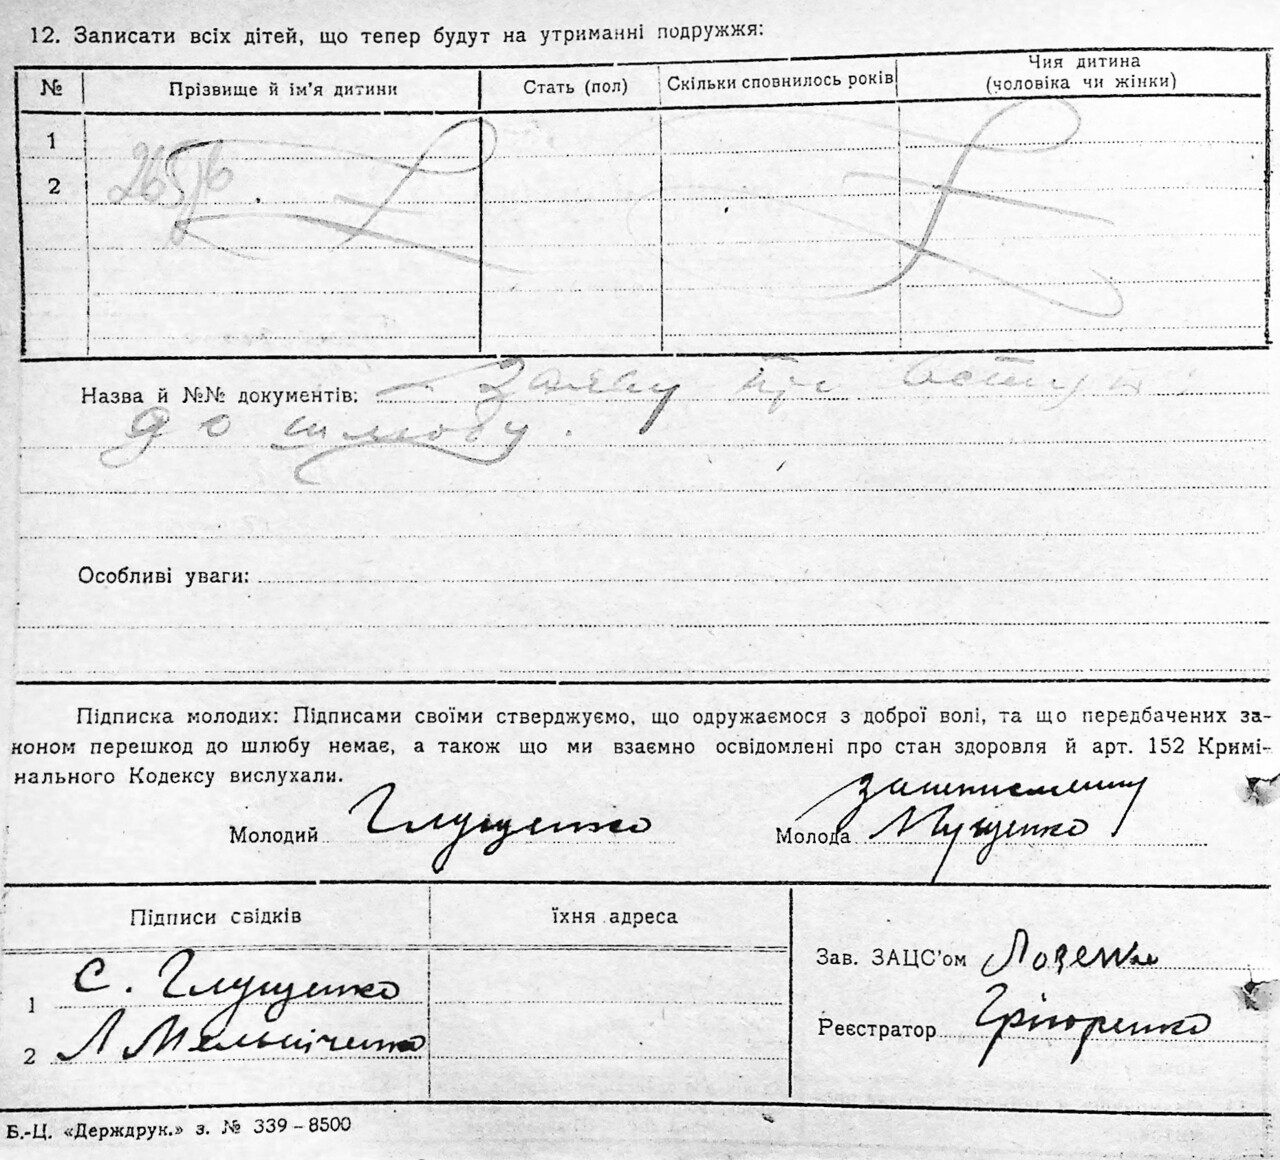 12. Записати всіх дітей, що тепер будут на утриманні подружжя:
№ Прізвище й ім'я дитини Стать (пол) Скільки сповнилось років Чия дитина
(чоловіка чи жінки)
1
2
Назва й №№ документів: Заяву про вступ
до шлюбу.
Особливі уваги:
Підписка молодих: Підписами своїми стверджуємо, що одружаємося з доброї волі, та що передбачених за-
коном перешкод до шлюбу немає, а також що ми взаємно освідомлені про стан здоровля й арт. 152 Кримі-
нального Кодексу вислухали.
Молодий Глущенко Молода
Підписи свідків їхня адреса
Зав. ЗАЦС'ом
1 С. Глущенко
Реєстратор Грігоренко
2 Л Мельніченко
Б.-Ц. «Держдрук.» з. № 339-8500